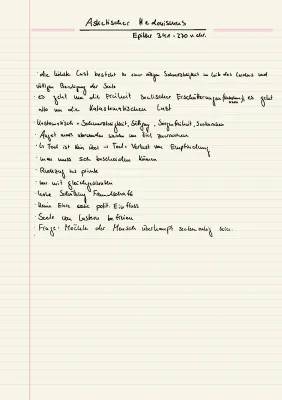 Asketischer Hedonismus
Epikur 341 - 270 v. chr.
· die höchste Lust besteht in einer völligen Schmerzlosigkeit im Leib des Lebens und
völligen Beruhigung der Seele
· es geht um die Freiheit seelischer Erschütterungen es geht
also um die Katastematischen Lust
Katastematisch = Schmerzlosigkeit, Sorgenfreiheit,
· Angst muss überwunden werden um Ziel zu erreichen
↳ Tod ist kein Übel → Tod = Verlust von Empfindung
· man muss sich bescheiden können
· Rückzug ins private
· nur mit gleichgesinnten
· hohe Schätzung Freundschaft
· keine Ehre, keine polit. Einfluss
· Seele von Lastern befreien
· Frage: Möchte der Mensch überhaupt seelenruhig sein.